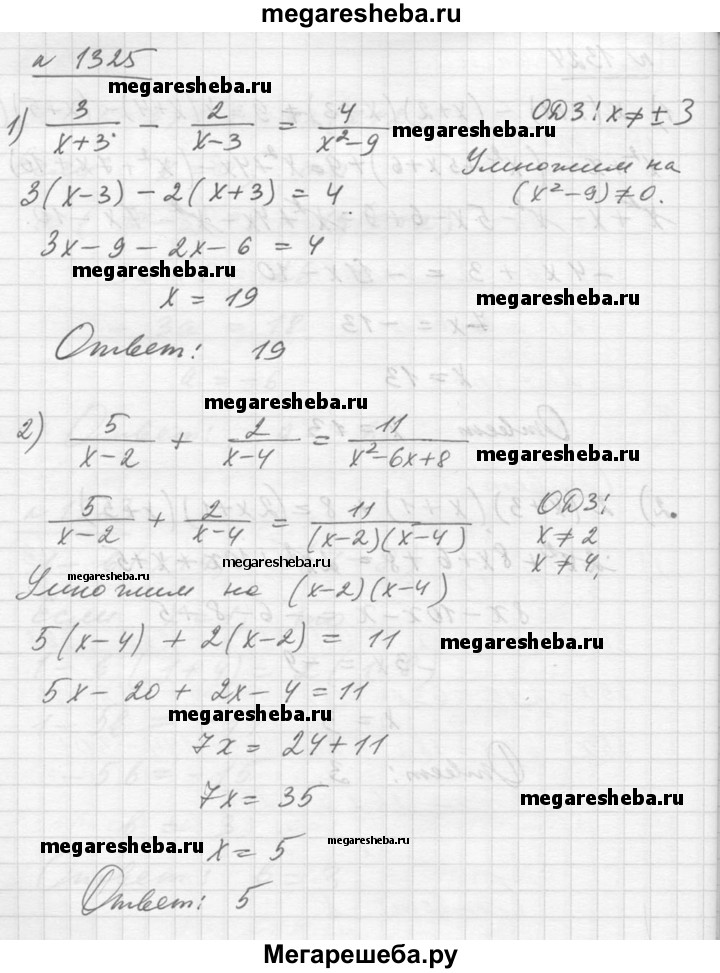 megaresheba.ru
n 1325
megaresheba.ru
1) 3/(x+3) - 2/(x-3) = 4/(x²-9) ОДЗ: x≠±3
megaresheba.ru
Умножим на
3(x-3) - 2(x+3) = 4. (x²-9)≠0.
3x-9-2x-6 = 4
megaresheba.ru
x = 19
megaresheba.ru
Ответ: 19
megaresheba.ru
2) 5/(x-2) + 2/(x-4) = 11/(x²-6x+8)
megaresheba.ru
5/(x-2) + 2/(x-4) = 11/((x-2)(x-4)) ОДЗ:
x≠2
x≠4,
megaresheba.ru
megaresheba.ru
Умножим на (x-2)(x-4)
5(x-4) + 2(x-2) = 11
megaresheba.ru
5x-20 + 2x-4=11
megaresheba.ru
7x = 24+11
7x= 35
megaresheba.ru
megaresheba.ru
x= 5
megaresheba.ru
Ответ: 5
Мегарешеба.ру